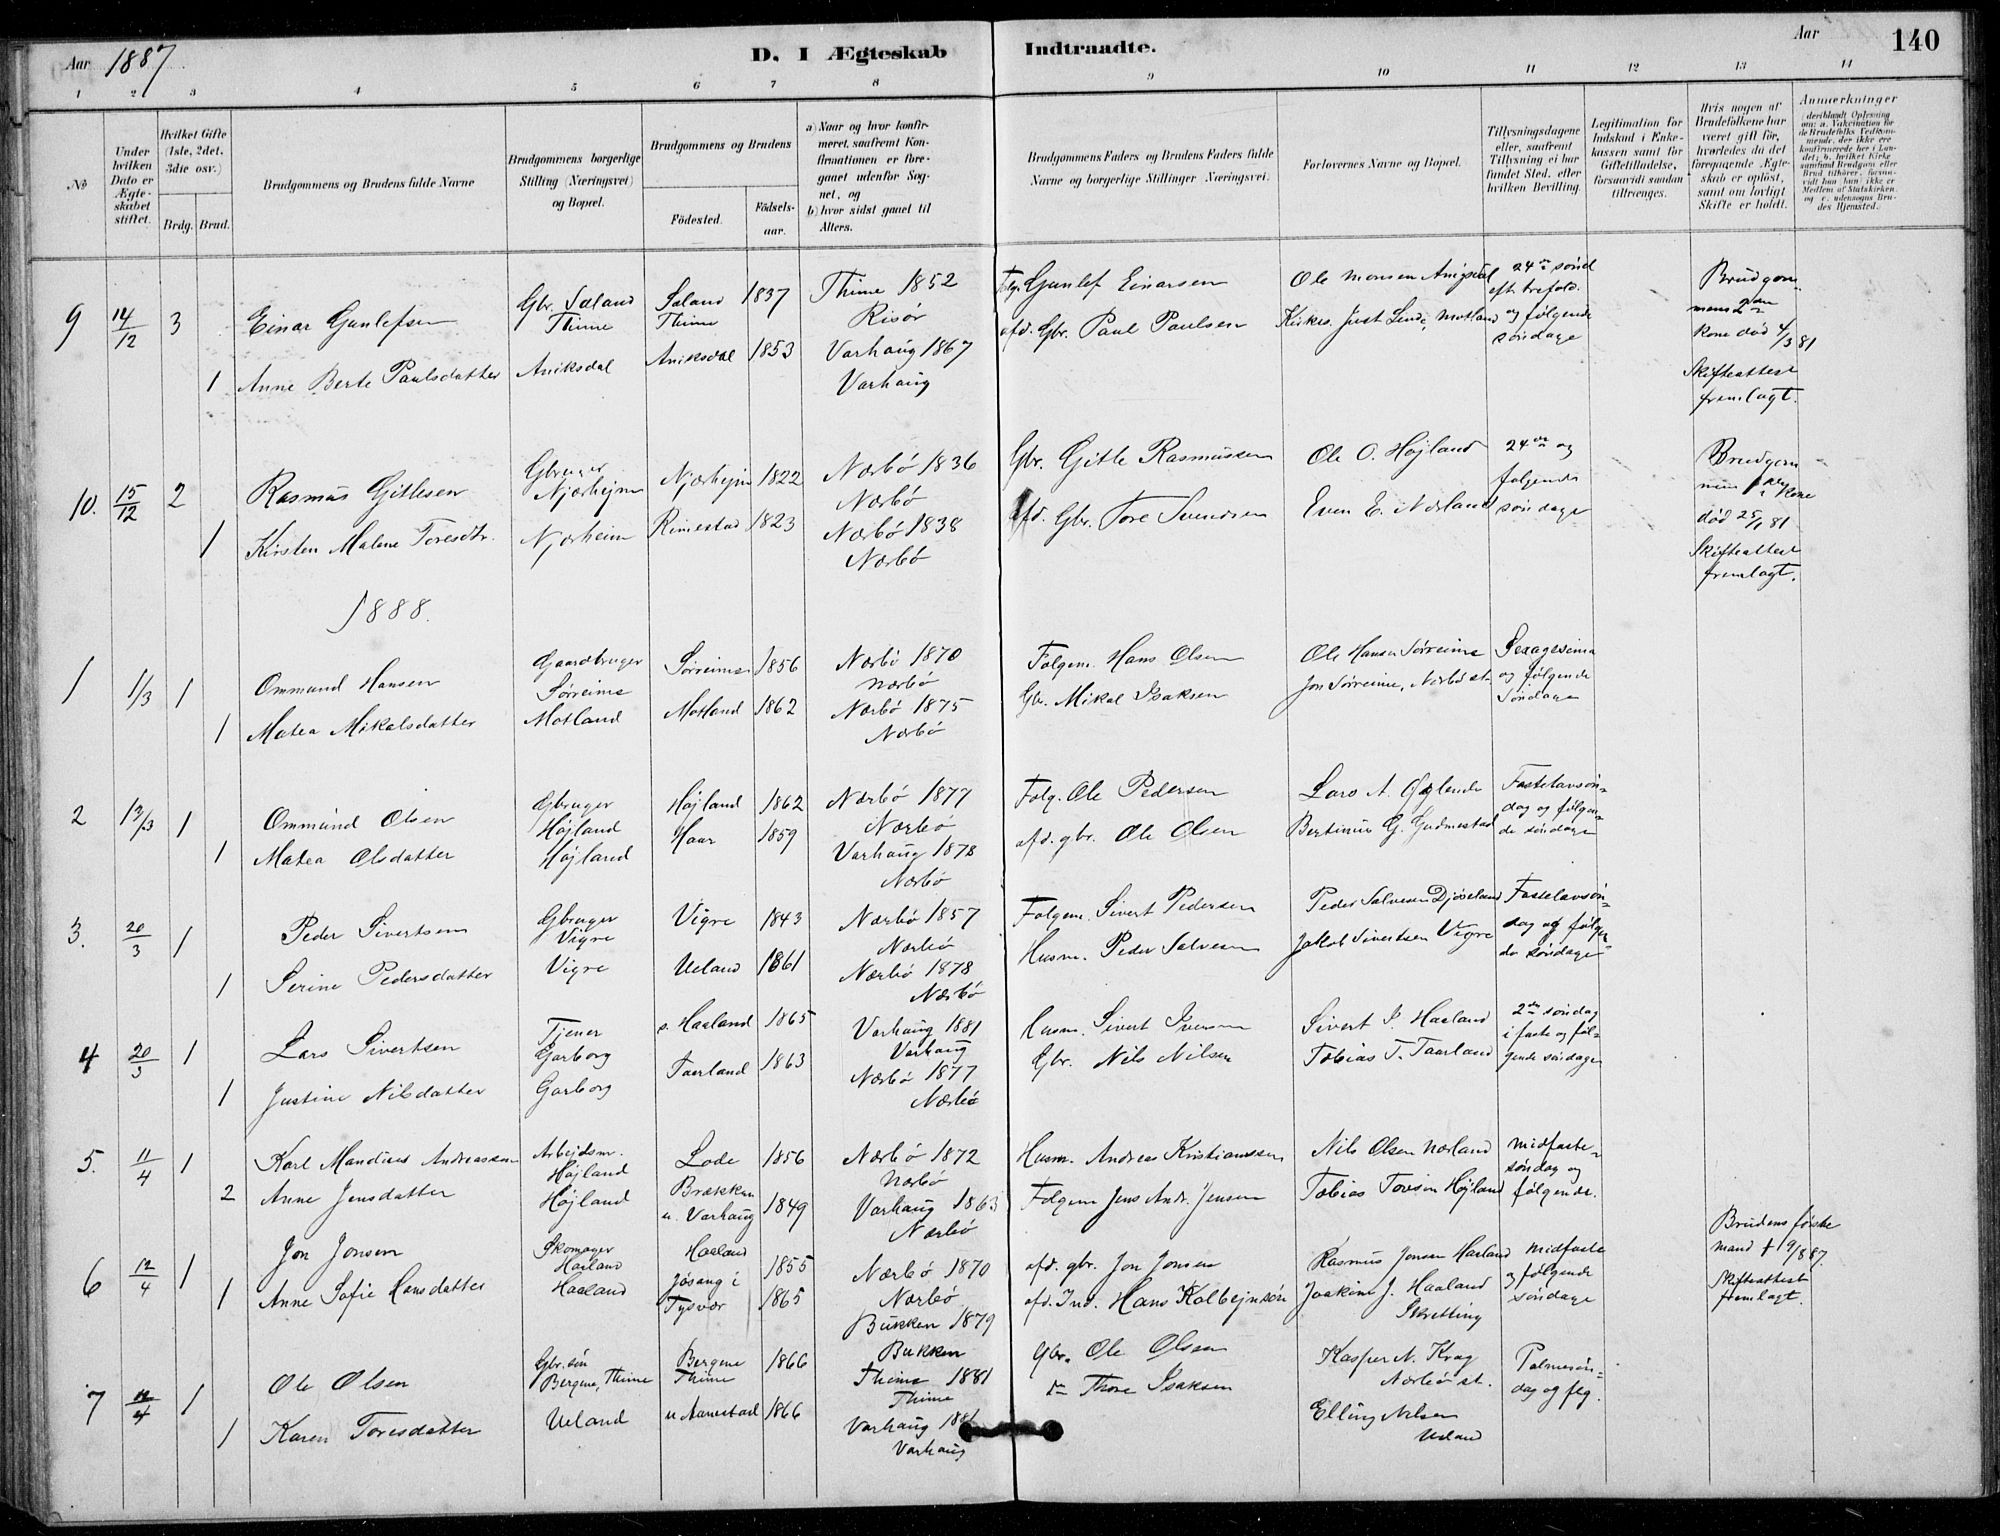 Aar 1887
D. I Ægteskab Indtraadte.
Aar
140
1 2 3 4 5 6 7 8 9 10 11 12 13 14
No
Under hvilken Dato er Ægteskabet stiftet.
Hvilket Gifte (1ste, 2det, 3die osv.)
Brdg. Brud.
Brudgommens og Brudens fulde Navne
Brudgommens borgerlige Stilling (Næringsvei) og Bopæl.
Brudgommens og Brudens
Födested. Födsels-aar.
a) Naar og hvor konfirmeret, saafremt Konfirmationen er foregaaet udenfor Sognet, og
b) hvor sidst gaaet til Alters.
Brudgommens Faders og Brudens Faders fulde Navne og borgerlige Stillinger (Næringsvei).
Forlovernes Navne og Bopæl.
Tillysningsdagene eller, saafremt Tillysning ei har fundet Sted, efter hvilken Bevilling.
Legitimation for Indskud i Enkekassen samt for Giftetilladelse, forsaavidt saadan tiltrænges.
Hvis nogen af Brudefolkene har været gift før, hvorledes da det foregaaende Ægteskab er opløst, samt om lovligt Skifte er holdt.
Anmerkninger
9 14/12 3 Einar Gunlefsen Gbr. Sæland Thime Sæland Thime 1837 Thime 1852 Risør Folgm. Gunlef Einarsen Ole Monsen Anigsdal 24de sønd. eft. trefold. og følgende søndage
Brudgommens 2den kone død 4/3 81 Skifteattest fremlagt.
1 Anne Berte Paulsdatter Aniksdal Aniksdal 1853 Varhaug 1867 Varhaug afd. Gbr. Paul Paulsen Kirkes. Just Lende, Motland
10. 15/12 2 Rasmus Gitlesen Gbruger Njærheim Njærheim 1822 Nærbö 1836 Nærbö Gbr. Gitle Rasmussen Ole O. Højland 24de og følgende søndage
Brudgommens 1ste kone død 25/1 81 Skifteattest fremlagt.
1 Kirsten Malene Toresdtr. Njærheim Rimestad 1823 Nærbö 1838 Nærbö afd. Gbr. Tore Svendsen Even E. Nærland
1888.
1 1/3 1 Ommund Hansen Gaardbruger Sørreime Sørreime 1856 Nærbö 1870 Nærbö Folgem. Hans Olsen Ole Hansen Sørreime Sexagesima og følgende Søndage
1 Matea Mikalsdatter Motland Motland 1862 Nærbö 1875 Nærbö Gbr. Mikal Isaksen Jon Sørreime, Nærbö st.
2 13/3 1 Ommund Olsen Gbruger Højland Højland 1862 Nærbö 1877 Nærbö Folg. Ole Pedersen Lars A. Fastelavnsøndag og følgende søndage
1 Matea Olsdatter Højland Haar 1859 Varhaug 1878 Nærbö afd. gbr. Ole Olsen Bertinius G. Gudmestad
3. 20/3 1 Peder Sivertsen Gbruger Vigre Vigre 1843 Nærbö 1857 Nærbö Folgem. Sivert Pedersen Peder Salvesen Djøseland Fastelavnsøndag og følgende søndage
1 Serine Pedersdatter Vigre Ueland 1861 Nærbö 1878 Nærbö Husm. Peder Salvesen Jakob Sivertsen Vigre
4 20/3 1 Lars Sivertsen Tjener Garborg s. Haaland 1865 Varhaug 1881 Varhaug Husm. Sivert Iversen Sivert I. Haaland 2den søndag i faste og følgende søndage
1 Justine Nilsdatter Garborg Taerland 1863 Nærbö 1877 Nærbö Gbr. Nils Nilsen Tobias T. Taarland
5. 11/4 1 Karl Mandius Andreassen Arbejdsm. Højland Lode 1856 Nærbö 1872 Nærbö Husm. Andreas Kristianssen Nils Olsen Nærland Midfastesøndag og følgende.
2 Anne Jensdatter Højland Brækken n. Varhaug 1849 Varhaug 1863 Nærbö Folgem Jens Andr. Jensen Tobias Torsen Højland
Brudens første mand † 19/8 87. Skifteattest fremlagt.
6 12/4 1 Jon Jonsen Skomager Haaland Haaland 1855 Nærbö 1870 Nærbö afd. gbr. Jon Jonsen Rasmus Jonsen Haaland Midfaste og følgende søndage
1 Anne Sofie Hansdatter Haaland Jösang i Tysvær 1865 Bukken 1879 Bukken afd. Ind. Hans Kolbejnsön Joakim J. Haaland Skretting
7 12/4 1 Ole Olsen Gbr. sön Bergene, Thime Bergene Thime 1866 Thime 1881 Thime Gbr. Ole Olsen Kasper N. Krag Nærbö st. Palmesöndag og flg.
1 Karen Toresdatter Ueland n Aanestad 1866 Varhaug 1881 Varhaug Thore Isaksen Elling Nilsen Ueland